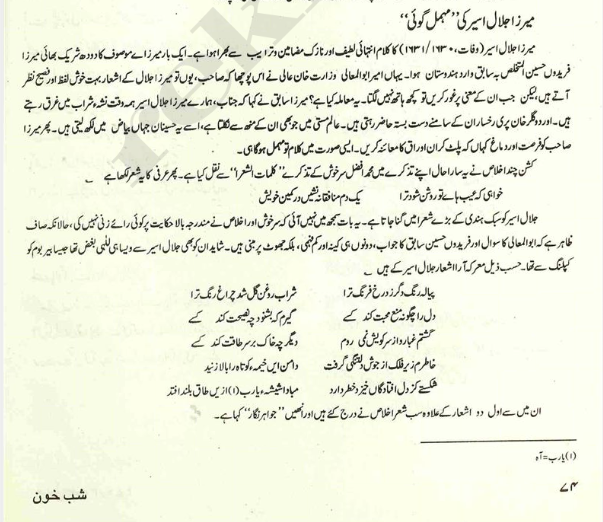 میرزا جلال اسیر کی ”مہمل گوئی“
میرزا جلال اسیر (وفات، ۱۶۳۰/۱۶۳۱) کا کلام انتہائی لطیف اور نازک مضامین و تراکیب سے بھرا ہوا ہے۔ ایک بار میرزاے موصوف کا دودھ شریک بھائی میرزا
فریدوں حسین المتخلص بہ سابق وارد ہندوستان ہوا۔ یہاں امیر ابوالمعالی وزارت خان عالی نے اس پوچھا کہ صاحب، یوں تو میرزا جلال کے اشعار بہت خوش لفظ اور فصیح نظر
آتے ہیں، لیکن جب ان کے معنی پر غور کریں تو کچھ ہاتھ نہیں لگتا۔ یہ معاملہ کیا ہے؟ میرزا سابق نے کہا کہ جناب، ہمارے میرزا جلال اسیر ہمہ وقت نشۂ شراب میں غرق رہتے
ہیں۔ اور دو نگار خان پری رخسار ان کے سامنے دست بستہ حاضر رہتی ہیں۔ عالم مستی میں جو بھی ان کے منھ سے نکلتا ہے، اسے یہ حسینان جہاں بیاض میں لکھ لیتی ہیں۔ پھر میرزا
صاحب کو فرصت اور دماغ کہاں کہ پلٹ کر ان اوراق کا معائنہ کریں۔ ایسی صورت میں کلام تو مہمل ہوگا ہی۔
کشن چند اخلاص نے یہ سارا حال اپنے تذکرے میں محمد افضل سرخوش کے تذکرے ”کلمات الشعرا“ سے نقل کیا ہے۔ پھر عرفی کا یہ شعر لکھا ہے
خواہی کہ عیب ہاے تو روشن شود ترا یک دم منافقانہ نشیں در کمین خویش
جلال اسیر کو سبک ہندی کے بڑے شعرا میں گنا جاتا ہے۔ یہ بات سمجھ میں نہیں آئی کہ سرخوش اور اخلاص نے مندرجہ بالا حکایت پر کوئی رائے زنی نہیں کی، حالانکہ صاف
ظاہر ہے کہ ابوالمعالی کا سوال اور فریدوں حسین سابق کا جواب، دونوں ہی کینہ اور کم فہمی، بلکہ جھوٹ پر مبنی ہیں۔ شاید ان کو بھی جلال اسیر سے ویسا ہی للٰہی بغض تھا جیسا بیر بوم کو
کپلنگ سے تھا۔ حسب ذیل معرکہ آرا اشعار جلال اسیر کے ہیں
پیالہ رنگ دگر ز درخ فرنگ ترا شراب روغن گل شد چراغ رنگ ترا
دل را چگونہ منع محبت کند کسے گیرم کہ بشنود چہ نصیحت کند کسے
گشتم غبار و از سر کویش نمی روم دیگر چہ خاک بر سر طاقت کند کسے
خاطرم زیر فلک از جوش دلتنگی گرفت دامن ایں خیمۂ کوتاہ را بالا زنید
شکستے کز دل افتادگاں خیزد خطر دارد مبادا شیشہ یارب (۱) ازیں طاق بلند افتد
ان میں سے اول دو اشعار کے علاوہ سب شعر اخلاص نے درج کئے ہیں اور انھیں ”جواہر نگار“ کہا ہے۔
(۱) یارب=آہ
۷۴
شب خون